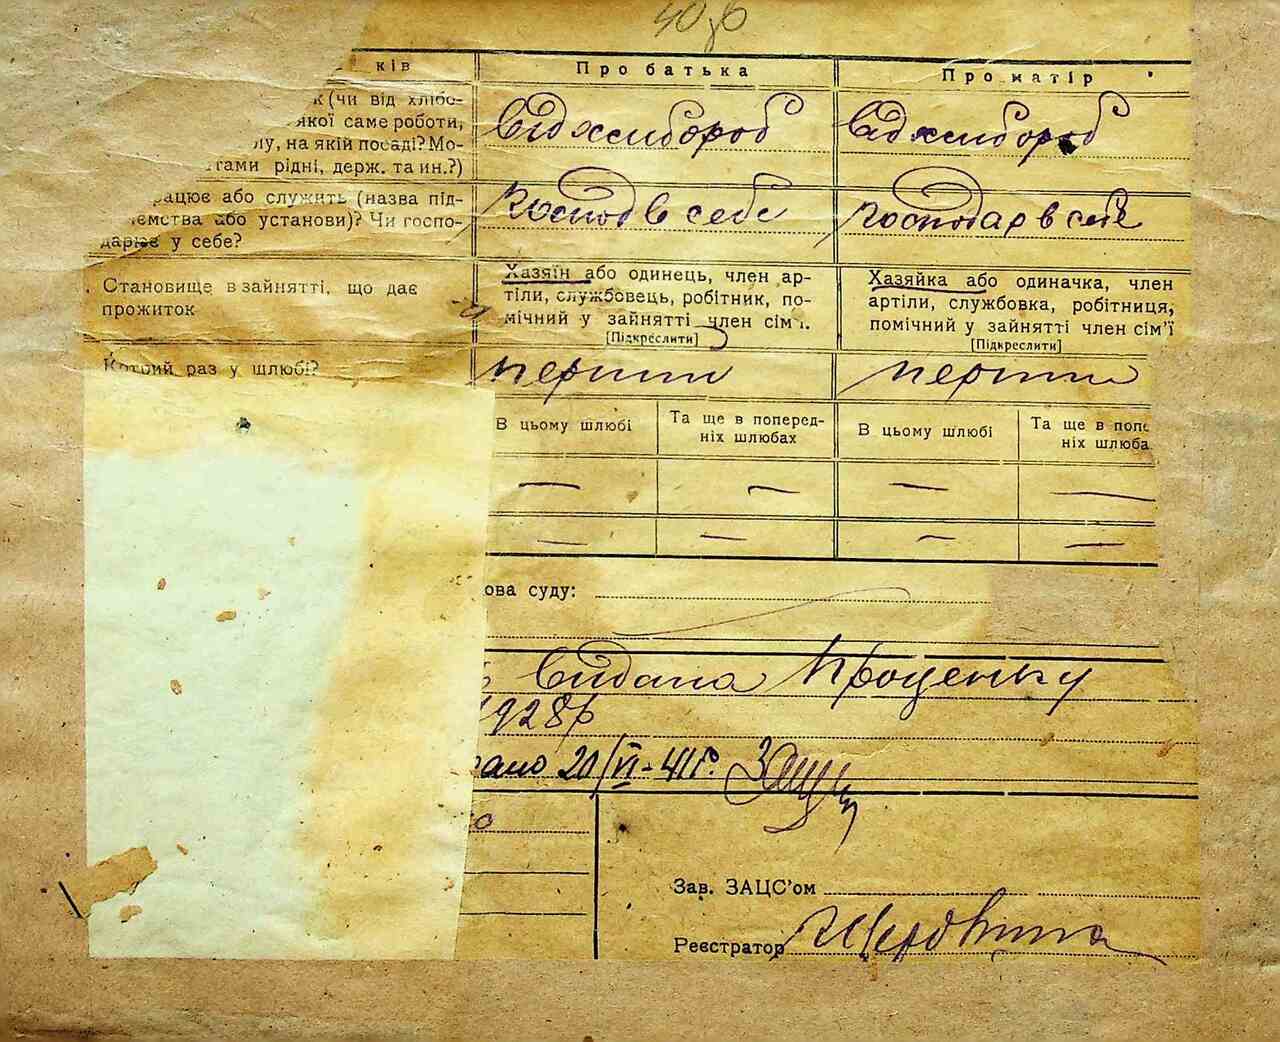 40
ків
Про батька
Про матір
к (чи від хлібо-
якої саме роботи,
лу, на якій посаді? Мо-
тами рідні, держ. та ин.?)
Від хлібороб
Від хлібороб
рацює або служить (назва під-
ємства або установи)? Чи госпо-
дарює у себе?
Господ в себе
Господар в себе
Становище в зайнятті, що дає
прожиток
Хазяїн або одинець, член ар-
тіли, службовець, робітник, по-
мічний у зайнятті член сім'ї.
[Підкреслити]
Хазяйка або одиначка, член
артіли, службовка, робітниця,
помічний у зайнятті член сім'ї
[Підкреслити]
Котрий раз у шлюбі?
перший
перший
В цьому шлюбі
Та ще в поперед-
ніх шлюбах
В цьому шлюбі
Та ще в попе
ніх шлюба
— — — —
— — — —
ова суду:
видана Проценку
1928р
ано 20/VI-41г.
Зав. ЗАЦС'ом
Реєстратор